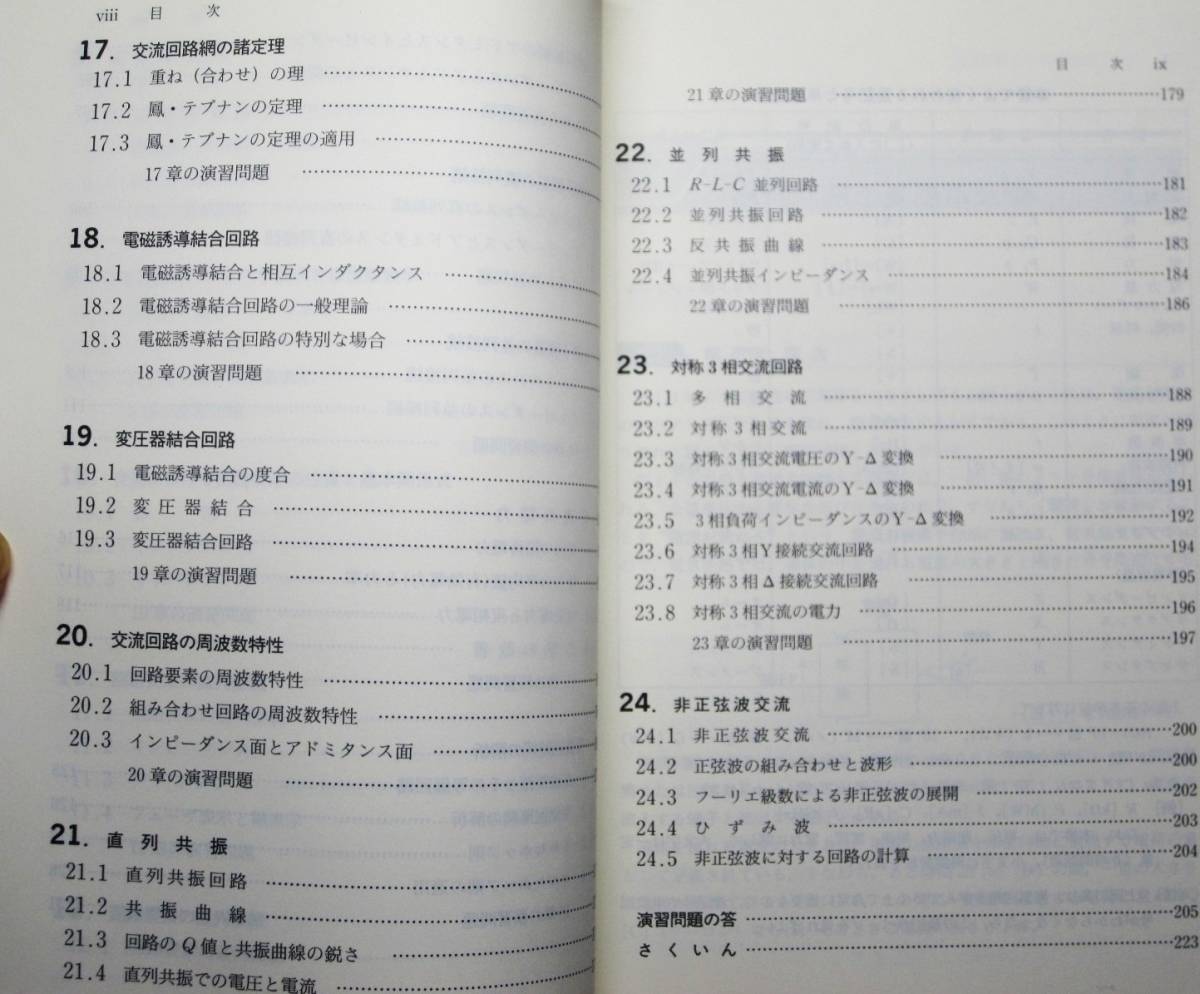 viii 目 次
17. 交流回路網の諸定理
17.1 重ね（合わせ）の理
17.2 鳳・テブナンの定理
17.3 鳳・テブナンの定理の適用
17章の演習問題
18. 電磁誘導結合回路
18.1 電磁誘導結合と相互インダクタンス
18.2 電磁誘導結合回路の一般理論
18.3 電磁誘導結合回路の特別な場合
18章の演習問題
19. 変圧器結合回路
19.1 電磁誘導結合の度合
19.2 変圧器結合
19.3 変圧器結合回路
19章の演習問題
20. 交流回路の周波数特性
20.1 回路要素の周波数特性
20.2 組み合わせ回路の周波数特性
20.3 インピーダンス面とアドミタンス面
20章の演習問題
21. 直列共振
21.1 直列共振回路
21.2 共振曲線
21.3 回路のQ値と共振曲線の鋭さ
21.4 直列共振での電圧と電流
目 次 ix
21章の演習問題 179
22. 並列共振
22.1 R-L-C 並列回路 181
22.2 並列共振回路 182
22.3 反共振曲線 183
22.4 並列共振インピーダンス 184
22章の演習問題 186
23. 対称3相交流回路
23.1 多相交流 188
23.2 対称3相交流 189
23.3 対称3相交流電圧のY-Δ変換 190
23.4 対称3相交流電流のY-Δ変換 191
23.5 3相負荷インピーダンスのY-Δ変換 192
23.6 対称3相Y接続交流回路 194
23.7 対称3相Δ接続交流回路 195
23.8 対称3相交流の電力 196
23章の演習問題 197
24. 非正弦波交流
24.1 非正弦波交流 200
24.2 正弦波の組み合わせと波形 200
24.3 フーリエ級数による非正弦波の展開 202
24.4 ひずみ波 203
24.5 非正弦波に対する回路の計算 204
演習問題の答 205
さくいん 223